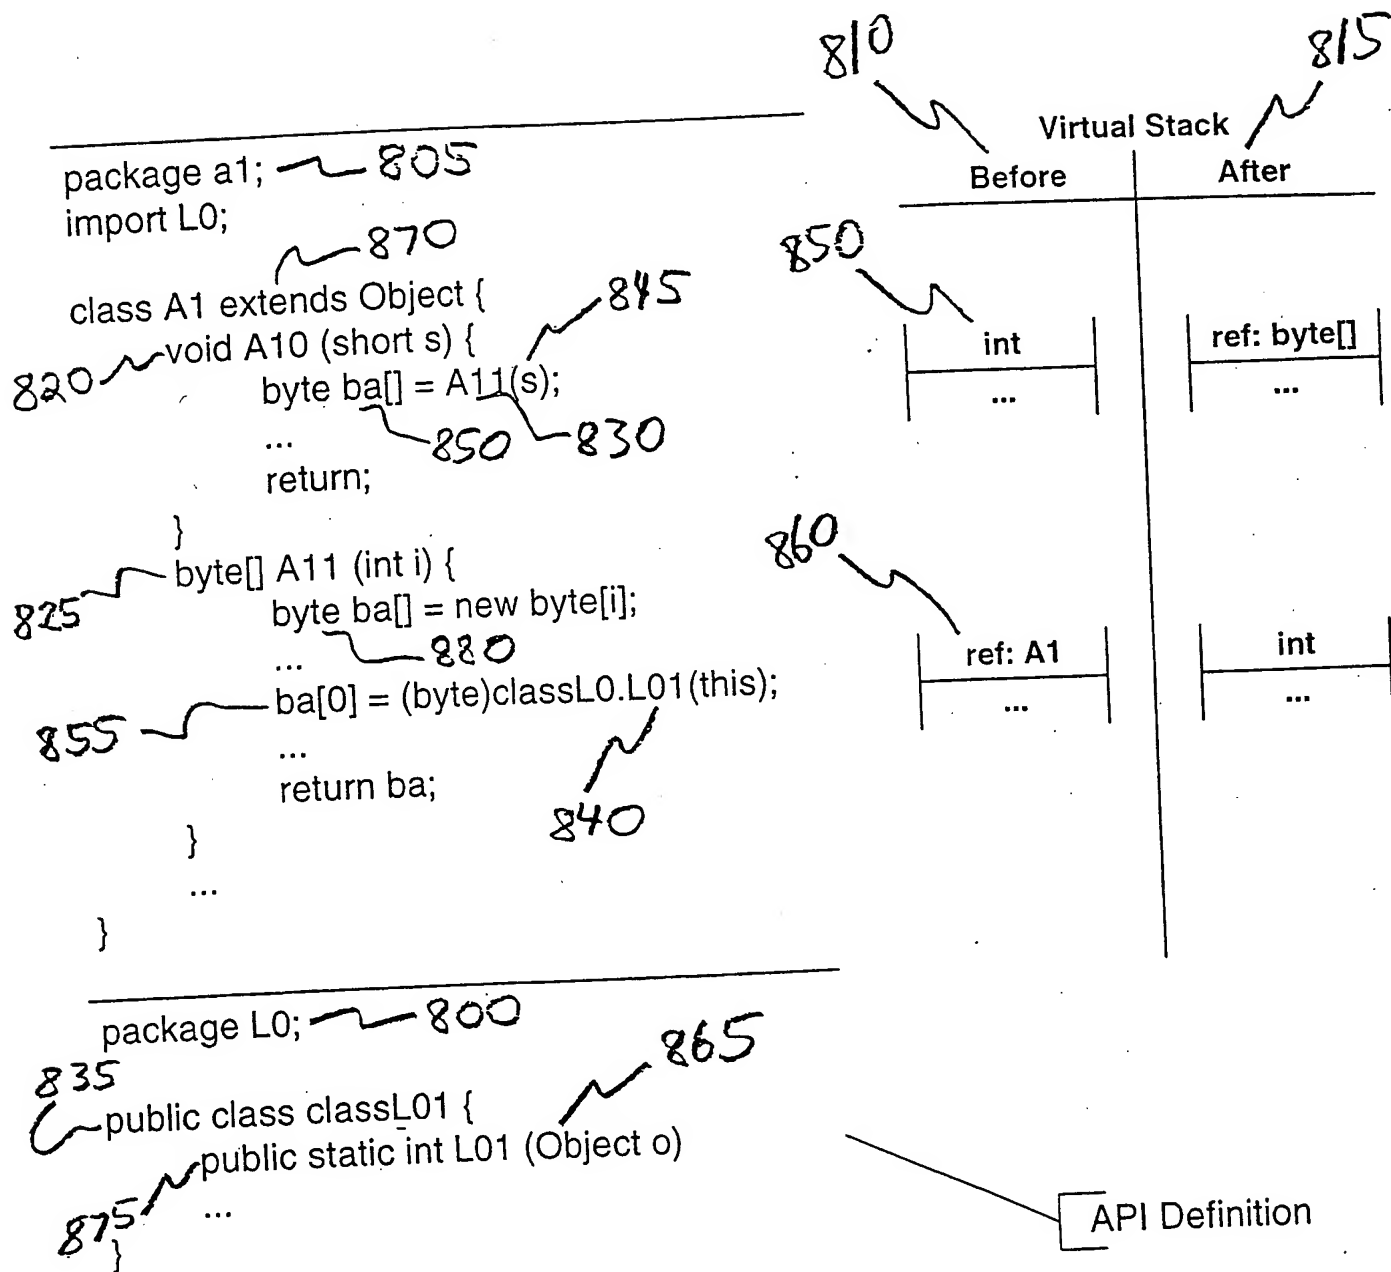 810
815
Virtual Stack
Before
After
package a1; 805
import L0;
870
class A1 extends Object {
845
820 void A10 (short s) {
byte ba[] = A11(s);
850 830
...
return;
}
825 byte[] A11 (int i) {
byte ba[] = new byte[i];
... 880
855 ba[0] = (byte)classL0.L01(this);
...
return ba;
840
}
...
}
850
int
...
ref: byte[]
...
860
ref: A1
...
int
...
package L0; 800
865
835
public class classL01 {
public static int L01 (Object o)
875 ...
}
API Definition